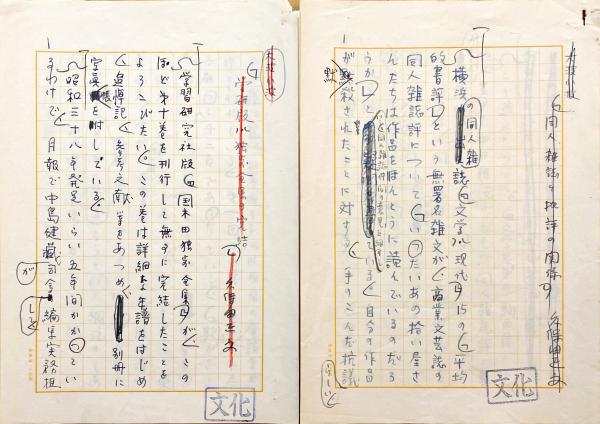 同人雑誌と批評の関係
久保田正文
横浜の同人雑誌『文学・現代』15の「平均
的書評」という無署名雑文が、商業文芸誌の
同人雑誌評について「いったいあの拾い屋さ
んたちは作品をほんとうに読んでいるのだろ
うか」と
ている。自分の作品
が黙殺されたことに対する、手のこんだ抗議
らしい。
文化
学研版・独歩全集の完結
久保田正文
学習研究社版『国木田独歩全集』が、この
ほど第十巻を刊行して無事に完結したことを
よろこびたい。この巻は詳細な年譜をはじめ
、血縁記、参考文献等をあつめ、別冊に
写真帳を付している。
昭和三十八年発足いらい五年間かかってい
るわけで、月報で中島健蔵が司会し、編集実務担
文化